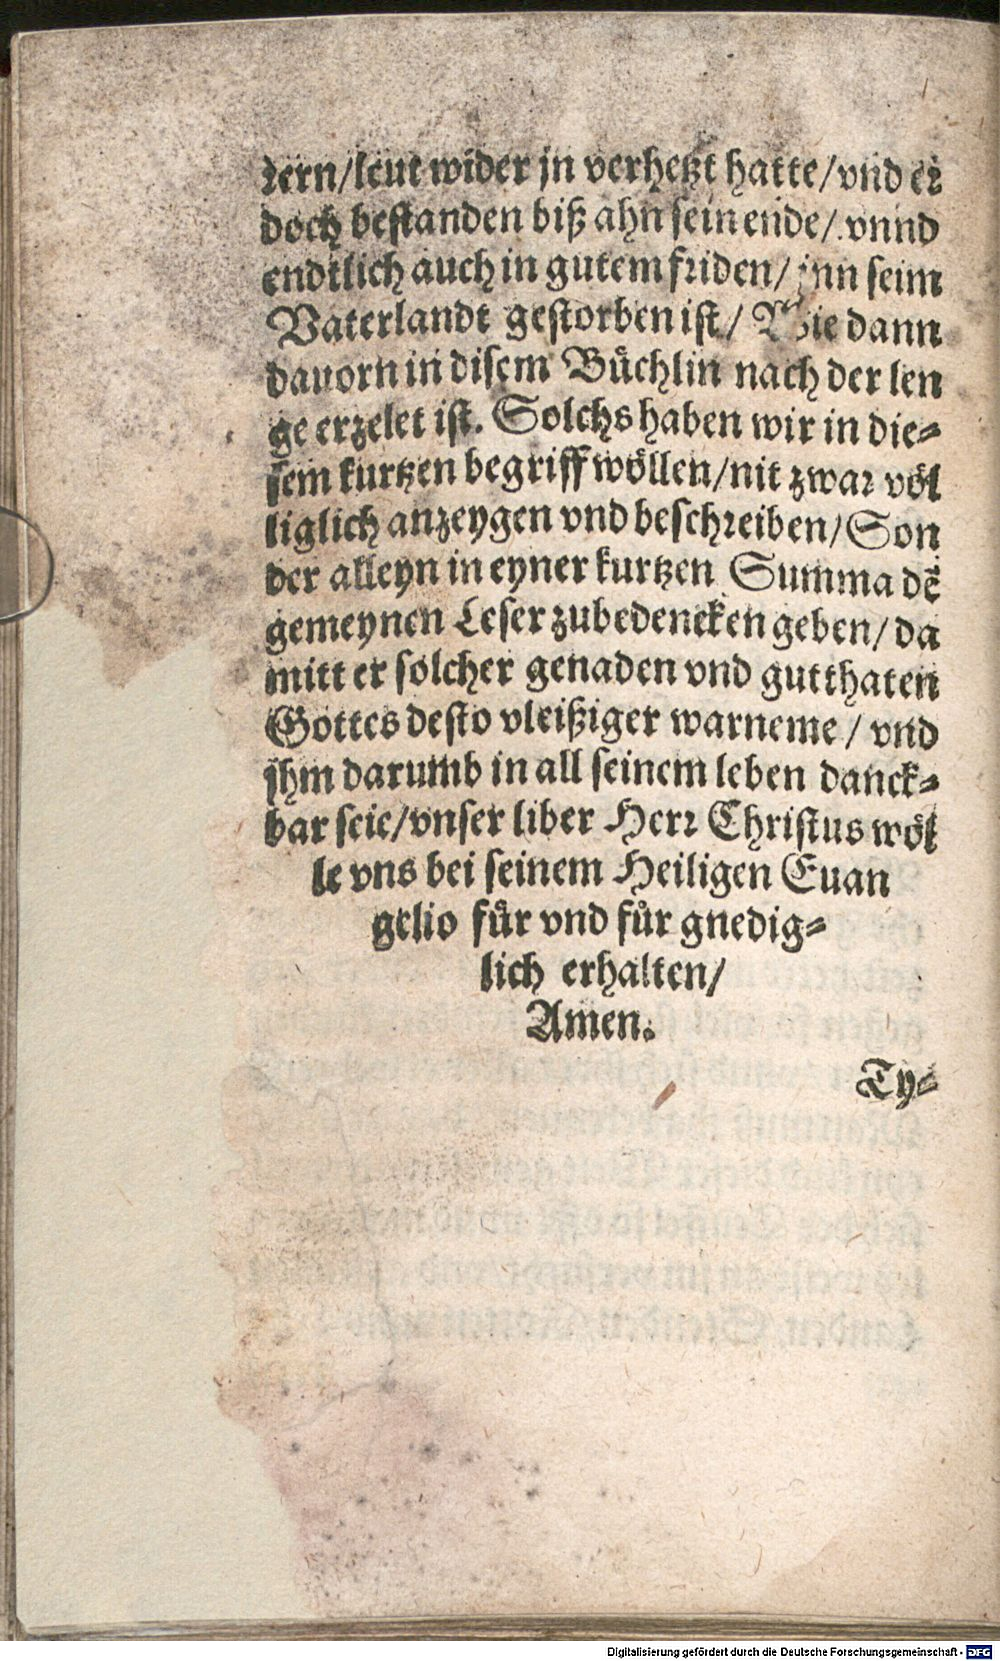 dern/leut wider jn verhetzt hatte/vnd er
doch bestanden biß ahn sein ende/ vnnd
endtlich auch in gutem friden/ jnn seim
Vaterlandt gestorben ist/ Wie dann
dauorn in disem Büchlin nach der len
ge erzelet ist. Solchs haben wir in die-
sem kurtzen begriff wöllen/nit zwar völ
liglich anzeygen vnd beschreiben/Son
der alleyn in eyner kurtzen Summa dẽ
gemeynen Leser zubedencken geben/ da
mitt er solcher genaden vnd gutthaten
Gottes desto vleißiger warneme / vnd
jhm darumb in all seinem leben danck-
bar seie/vnser liber Herr Christus wöl
le vns bei seinem Heiligen Euan
gelio für vnd für gnedig-
lich erhalten/
Amen.
Ty-
Digitalisierung gefördert durch die Deutsche Forschungsgemeinschaft - DFG